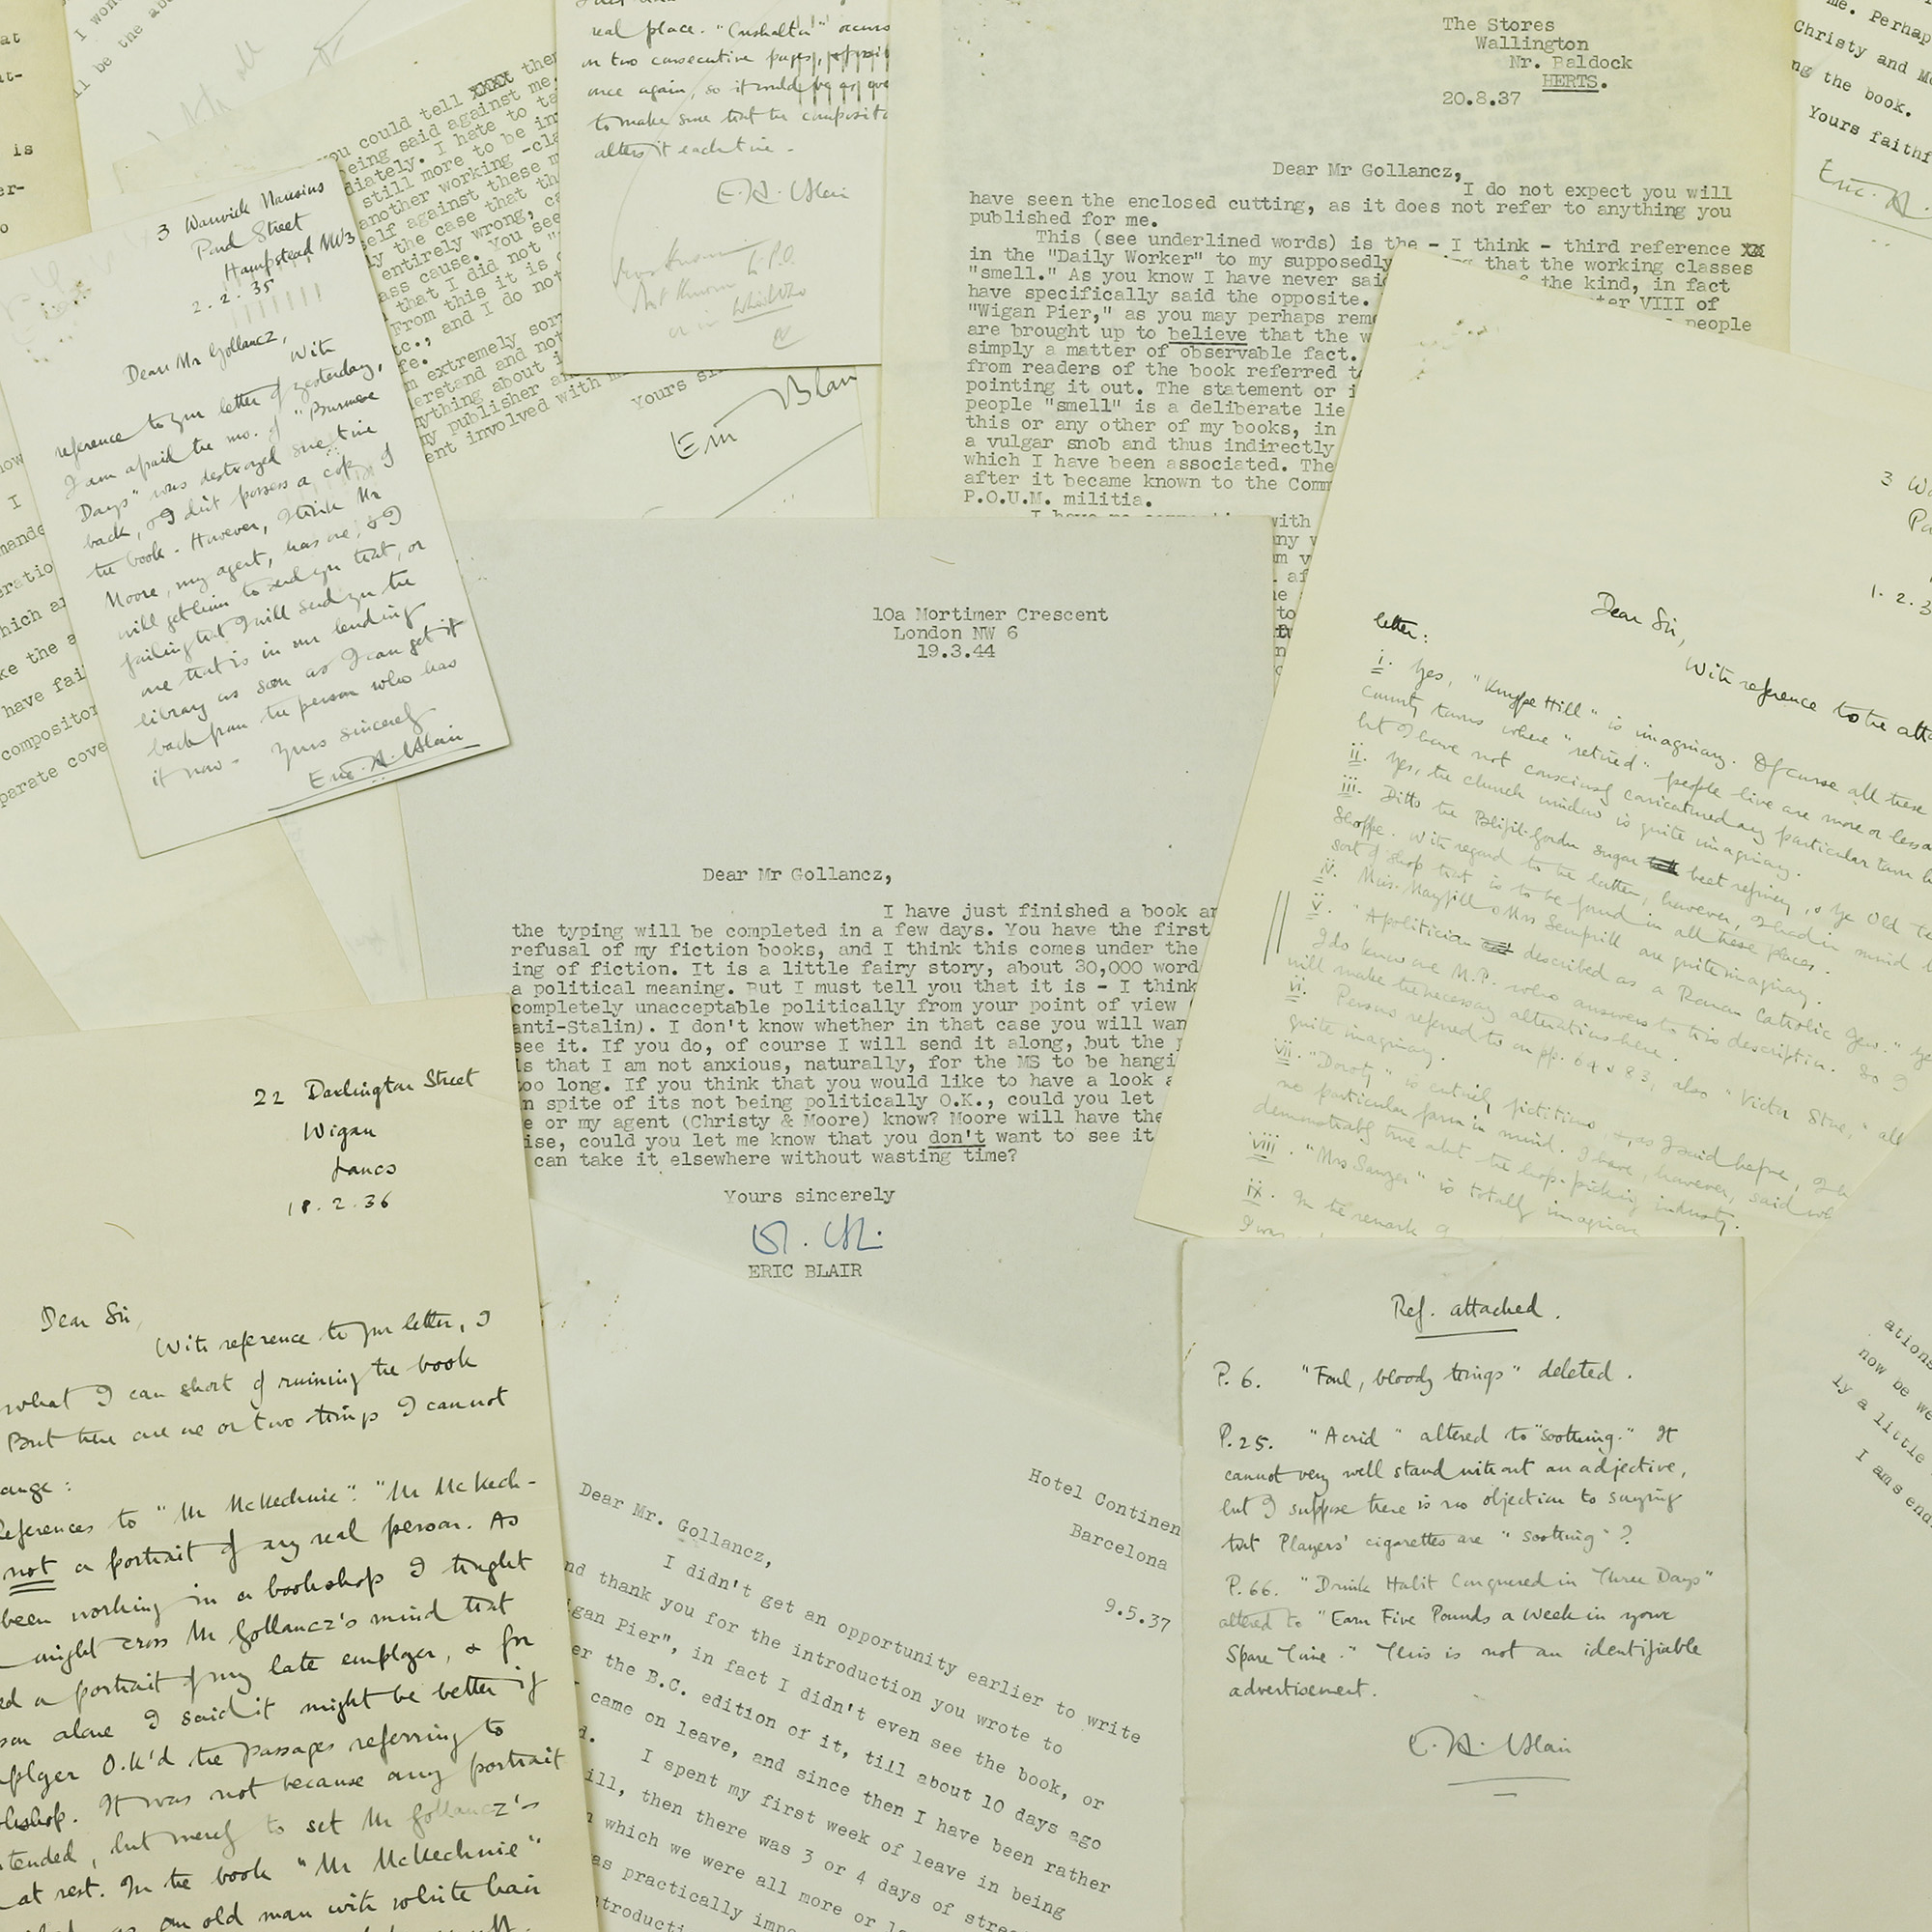 I won
ll be the abo
at
at-
is
er-
o
3 Warwick Mansions
Pond Street
Hampstead NW3
2.2.35
Dear Mr Gollancz,
With
reference to your letter of yesterday,
I am afraid the ms. of "Burmese
Days" was destroyed some time
back, & I don't possess a copy of
the book. However, I think Mr
Moore, my agent, has one, & I
will get him to send you that, or
failing that I will send you the
one that is in our lending
library as soon as I can get it
back from the person who has
it now. Yours sincerely
Eric A. Blair
you could tell XXXX them
being said against me
diately. I hate to ta
still more to be in
another working-cla
self against these m
ly the case that th
entirely wrong, ca
ass cause. You see
that I did not "
From this it is
tc., and I do not
fe.
m extremely sorr
erstand and not
ything about i
my publisher a
ent involved with m
Yours si
Eric Blair
real place. "Cushalton" occurs
on two consecutive pages,
once again, so it would be as
to make sure that the composito
alters it each time.
E. A. Blair
Who's Who
The Stores
Wallington
Nr. Baldock
HERTS.
20.8.37
Dear Mr Gollancz,
I do not expect you will
have seen the enclosed cutting, as it does not refer to anything you
published for me.
This (see underlined words) is the - I think - third reference XX
in the "Daily Worker" to my supposedly ing that the working classes
"smell." As you know I have never said of the kind, in fact
have specifically said the opposite. ter VIII of
"Wigan Pier," as you may perhaps reme people
are brought up to believe that the w
simply a matter of observable fact.
from readers of the book referred to
pointing it out. The statement or i
people "smell" is a deliberate lie
this or any other of my books, in
a vulgar snob and thus indirectly
which I have been associated. The
after it became known to the Comm
P.O.U.M. militia.
with
me. Perhap
Christy and Mo
ng the book.
Yours faithf
Eric A.
10a Mortimer Crescent
London NW 6
19.3.44
Dear Mr Gollancz,
I have just finished a book an
the typing will be completed in a few days. You have the first
refusal of my fiction books, and I think this comes under the
ing of fiction. It is a little fairy story, about 30,000 word
a political meaning. But I must tell you that it is - I think
completely unacceptable politically from your point of view (
anti-Stalin). I don't know whether in that case you will wan
see it. If you do, of course I will send it along, but the p
is that I am not anxious, naturally, for the MS to be hangi
too long. If you think that you would like to have a look a
n spite of its not being politically O.K., could you let
e or my agent (Christy & Moore) know? Moore will have the
ise, could you let me know that you don't want to see it
can take it elsewhere without wasting time?
Yours sincerely
E. A. Bl.
ERIC BLAIR
3 Wa
Po
1.2.3
Dear Sir,
With reference to the atta
letter:
i. Yes, "Knype Hill" is imaginary. Of course all these
county towns where "retired" people live are more or less a
but I have not consciously caricatured any particular town
ii. Yes, the church window is quite imaginary.
iii. Ditto the Blifil-Gordon sugar beet refinery, & Ye Olde Te
Shoppe. With regard to the latter, however, I had in mind
sort of shop that is to be found in all these places.
iv. Miss Mayfill & Mrs Semprill are quite imaginary.
v. "A politician described as a Roman Catholic Jew." Ye
I do know one M.P. who answers to this description. So I
will make the necessary alterations here.
vi. Persons referred to on pp. 64 & 83, also "Victor Stone," all
quite imaginary.
vii. "Doroty" is entirely fictitious, &, as I said before, I h
no particular farm in mind. I have, however, said wh
demonstrably true abt the hop-picking industry.
viii. "Mrs Sawyer" is totally imaginary
ix. In the remark
I was
now
I
mande
eratio
hich ar
ke the a
have fai
compositor
parate cove
22 Darlington Street
Wigan
Lancs
18.2.36
Dear Sir,
With reference to your letter, I
what I can short of ruining the book
But there are one or two things I cannot
ange:
References to "Mr McKechnie". "Mr McKech-
not a portrait of any real person. As
been working in a bookshop I thought
might cross Mr Gollancz's mind that
ed a portrait of my late employer, & for
son alone I said it might be better if
mployer O.K'd the passages referring to
okshop. It was not because any portrait
tended, but merely to set Mr Gollancz's
at rest. In the book "Mr McKechnie"
an old man with white hair
Hotel Continen
Barcelona
9.5.37
Dear Mr. Gollancz,
I didn't get an opportunity earlier to write
nd thank you for the introduction you wrote to
igan Pier", in fact I didn't even see the book, or
er the B.C. edition of it, till about 10 days ago
came on leave, and since then I have been rather
d.
I spent my first week of leave in being
ill, then there was 3 or 4 days of stree
n which we were all more or le
as practically impo
troducti
Ref. attached.
P.6. "Foul, bloody things" deleted.
P.25. "Acrid" altered to "soothing." It
cannot very well stand without an adjective,
but I suppose there is no objection to saying
that Players' cigarettes are "soothing"?
P.66. "Drink Habit Conquered in Three Days"
altered to "Earn Five Pounds a Week in your
Spare Time." This is not an identifiable
advertisement.
E. A. Blair
ations
now be we
ly a little
I am send